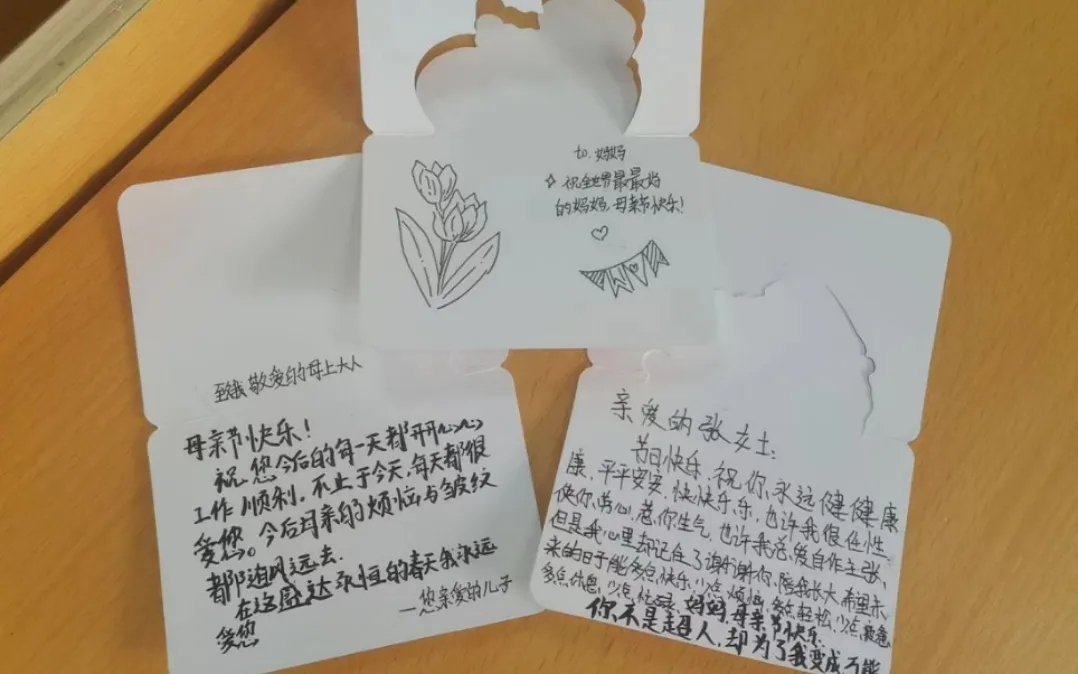 to. 妈妈
祝全世界最最好
的妈妈,母亲节快乐!
至我敬爱的母上大人
母亲节快乐!
祝您今后的每一天都开开心心
工作顺利,不止于今天,每天都很
爱您。今后母亲的烦恼与皱纹
都随风远去.
在这盛达永恒的春天我永远
爱您
—您亲爱的儿子
亲爱的张女士:
节日快乐,祝你永远健健康
康,平平安安,快快乐乐,也许我很任性
使你劳心,惹你生气,也许我总爱自作主张,
但是我心里却记住了谢谢你,陪我长大,希望未
来的日子能多点快乐,少点烦恼,多点轻松,少点疲惫
多点休息,少点,妈妈,母亲节快乐.
你不是超人,却为了我变成万能